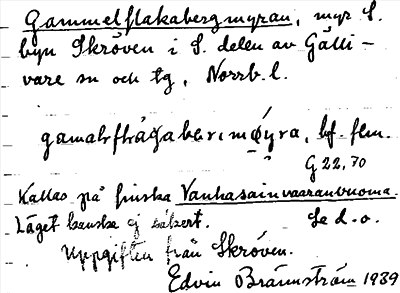 Gammelflakabergmyran, myr S.
byn Skröven i S. delen av Gälli-
vare sn och tg, Norrb. l.
bf. flm.
G 22, 70
Kallas på finska Vanhasainvaaranvuoma.
Läget kanske ej säkert. Se d. o.
Uppgiften från Skröven.
Edvin Brännström 1939